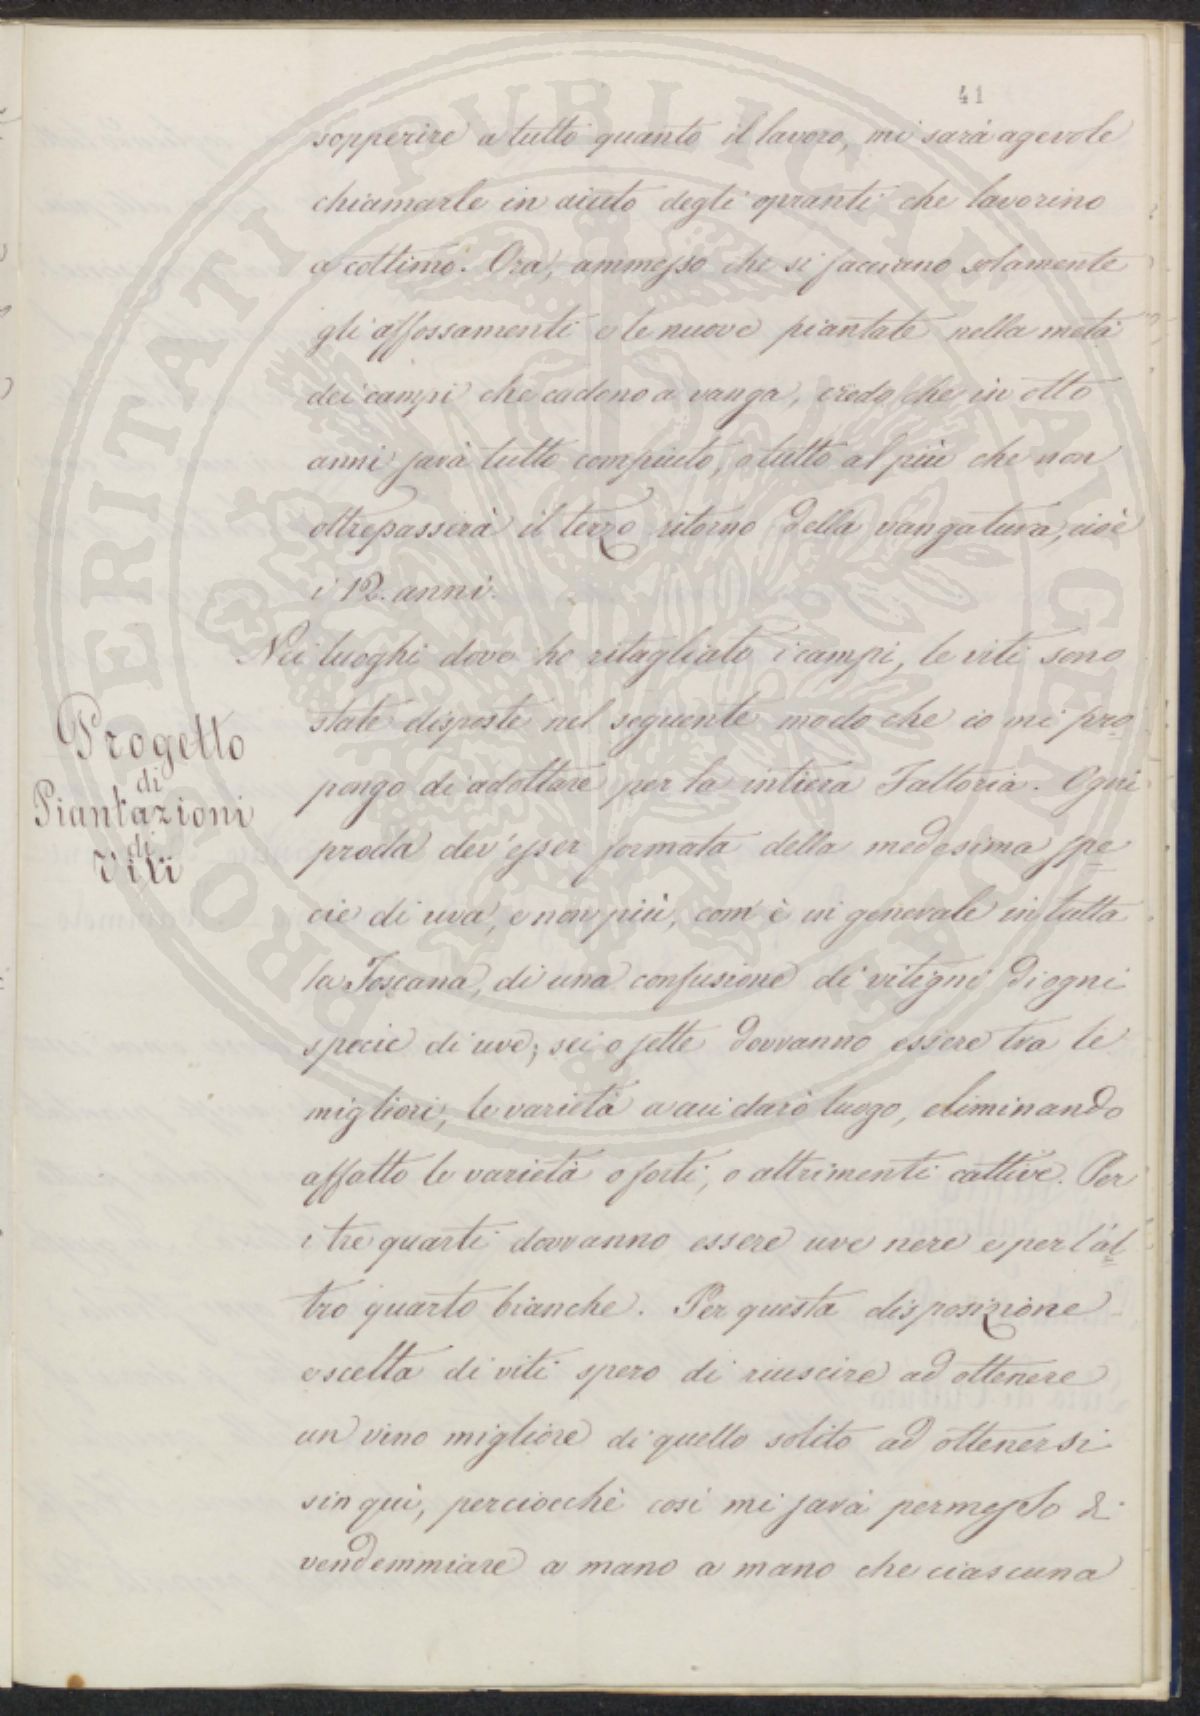 41
sopperire a tutto quanto il lavoro, mi sarà agevole
chiamarle in aiuto degli opranti che lavorino
a cottimo. Ora, ammesso che si facciano solamente
gli affossamenti e le nuove piantate nella metà
dei campi che cadono a vanga, credo che in otto
anni sarà tutto compiuto, o tutto al più che non
oltrepasserà il terzo ritorno della vangatura, cioè
i 12. anni.
Nei luoghi dove ho ritagliato i campi, le viti sono
state disposte nel seguente modo che io mi pro
pongo di adottare per la intiera Fattoria. Ogni
proda dev'esser formata della medesima spe
cie di uva, e non più, com'è in generale in tutta
la Toscana, di una confusione di vitigni di ogni
specie di uve; sei o sette dovranno essere tra le
migliori, le varietà a cui darò luogo, eliminando
affatto le varietà o forti, o altrimenti cattive. Per
i tre quarti dovranno essere uve nere e per l'al
tro quarto bianche. Per questa disposizione
e scelta di viti spero di riuscire ad ottenere
un vino migliore di quello solito ad ottenersi
sin quì, perciocchè così mi sarà permesso di
vendemmiare a mano a mano che ciascuna
Progetto
di
Piantazioni
di
Viti
PROSPERITATI PUBLICAE AUGENDAE